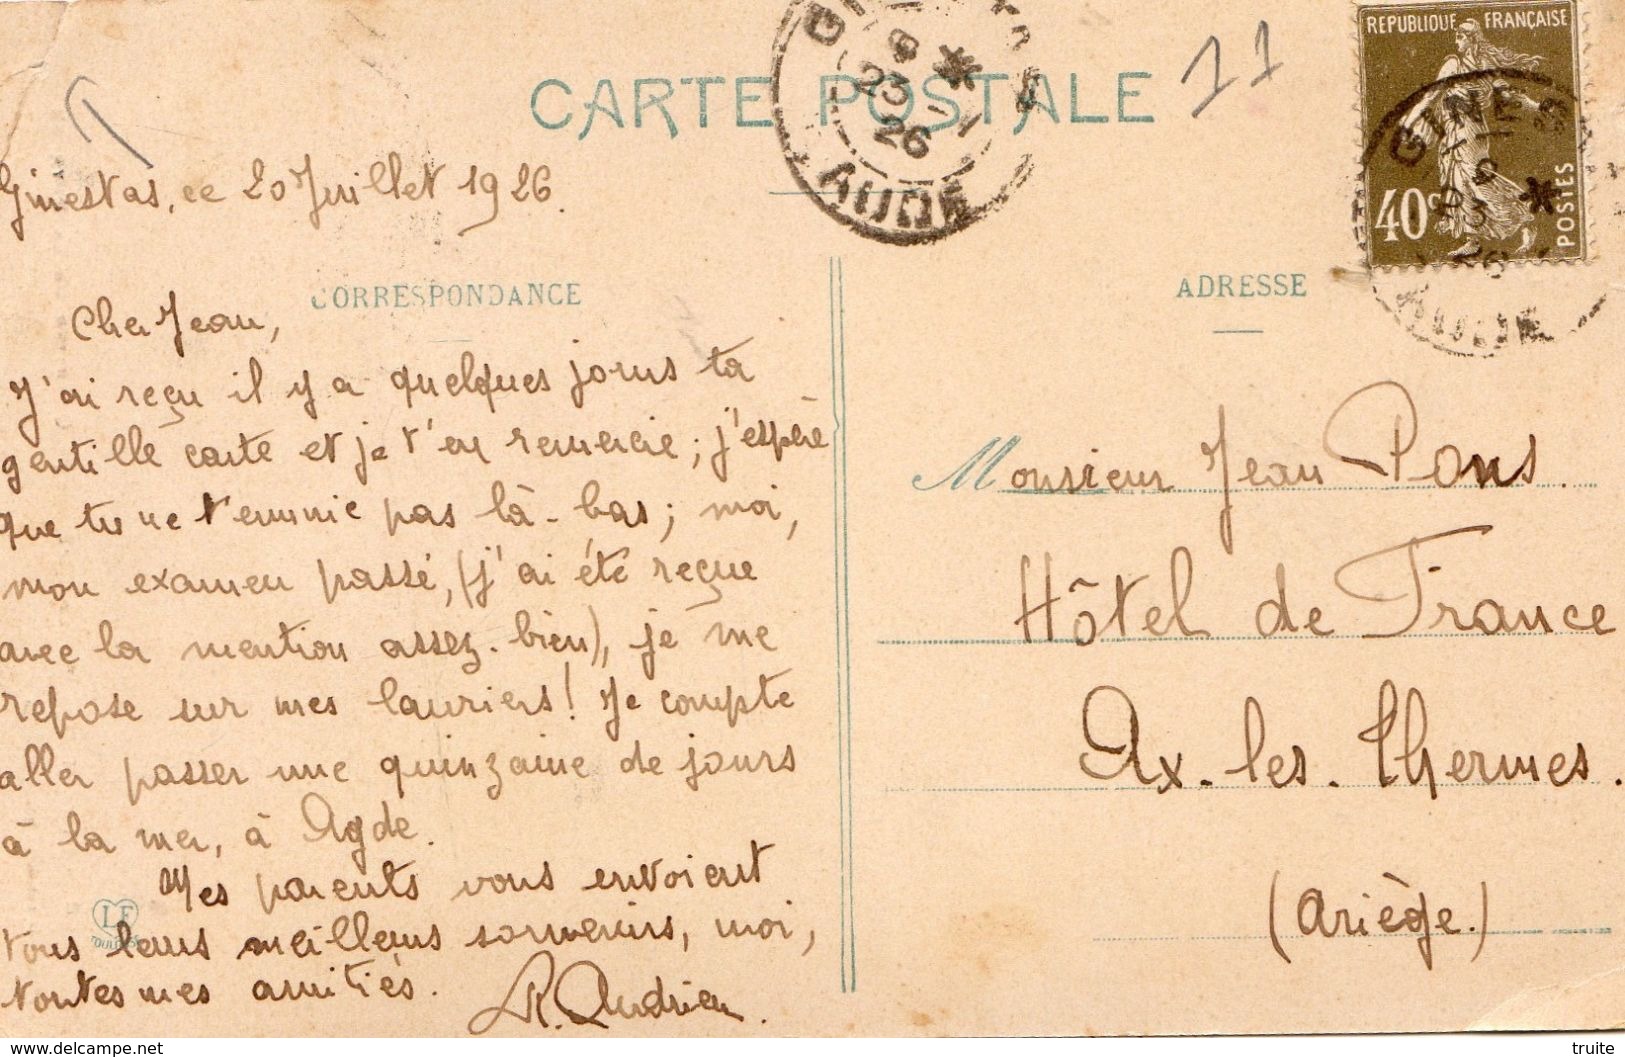 CARTE POSTALE
11
REPUBLIQUE FRANÇAISE
40c
POSTES
23
26
AUDE
GINE
AUDE
Ginestas, ce 20 Juillet 1926.
CORRESPONDANCE
Cher Jean,
J'ai reçu il y a quelques jours ta
gentille carte et je t'en remercie; j'espère
que tu ne t'ennuie pas là-bas; moi,
mon examen passé, (j'ai été reçue
avec la mention assez-bien), je me
repose sur mes lauriers! Je compte
aller passer une quinzaine de jours
à la mer, à Agde.
Mes parents vous envoient
tous leurs meilleurs souvenirs, moi,
toutes mes amitiés.
R. Andrieu.
LF
TOULOUSE
ADRESSE
Monsieur Jean Pons.
Hôtel de France
Ax-les-Thermes.
(Ariège.)
delcampe.net
truite